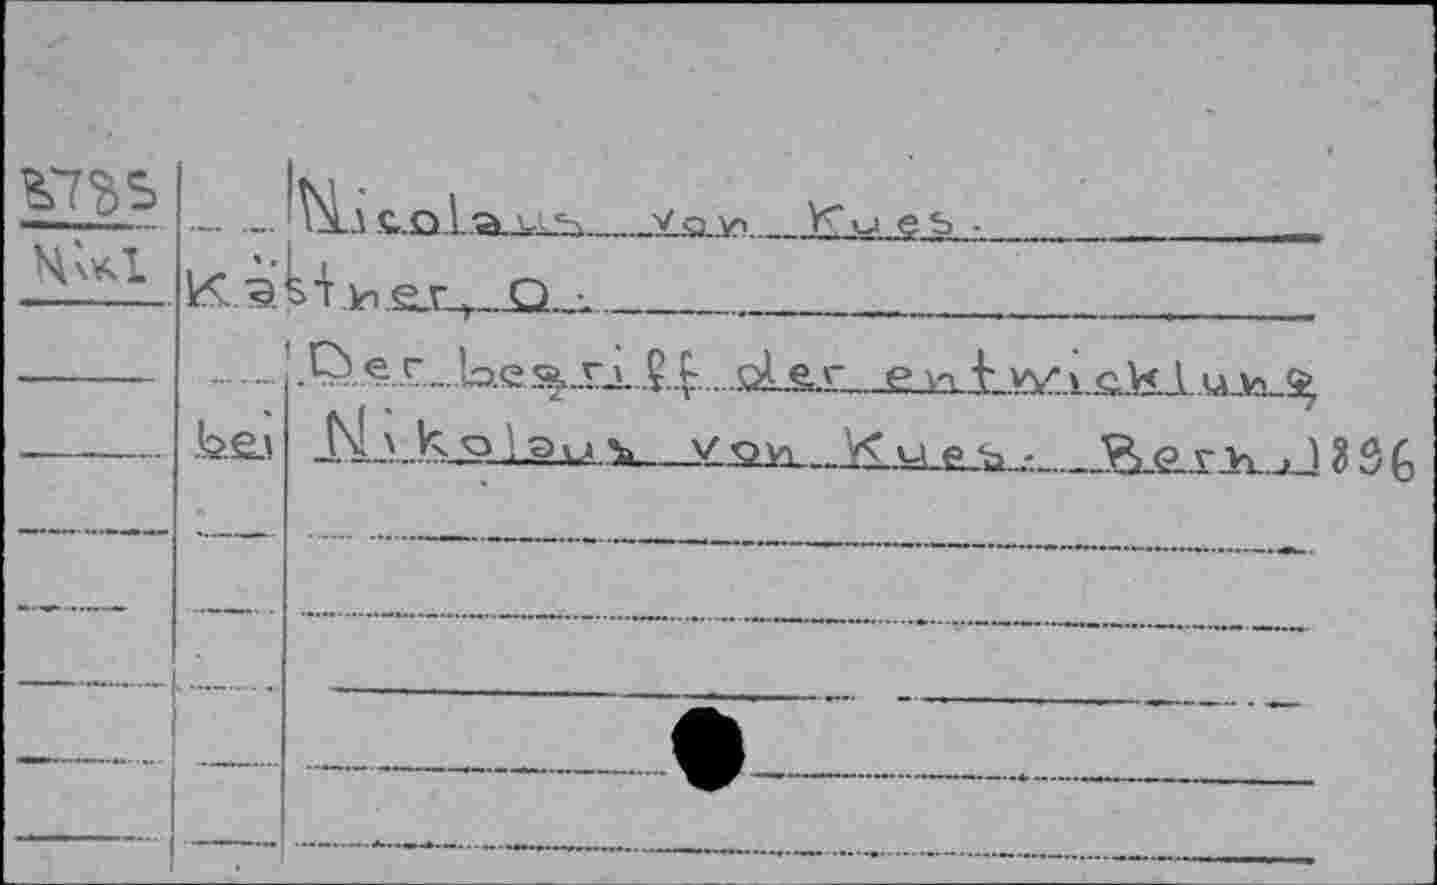 B785 Nicolaus von Kues.
NikI Kästner, O.
Der begriff der entwicklung
bei Nikolaus von Kues. Bern, 1896